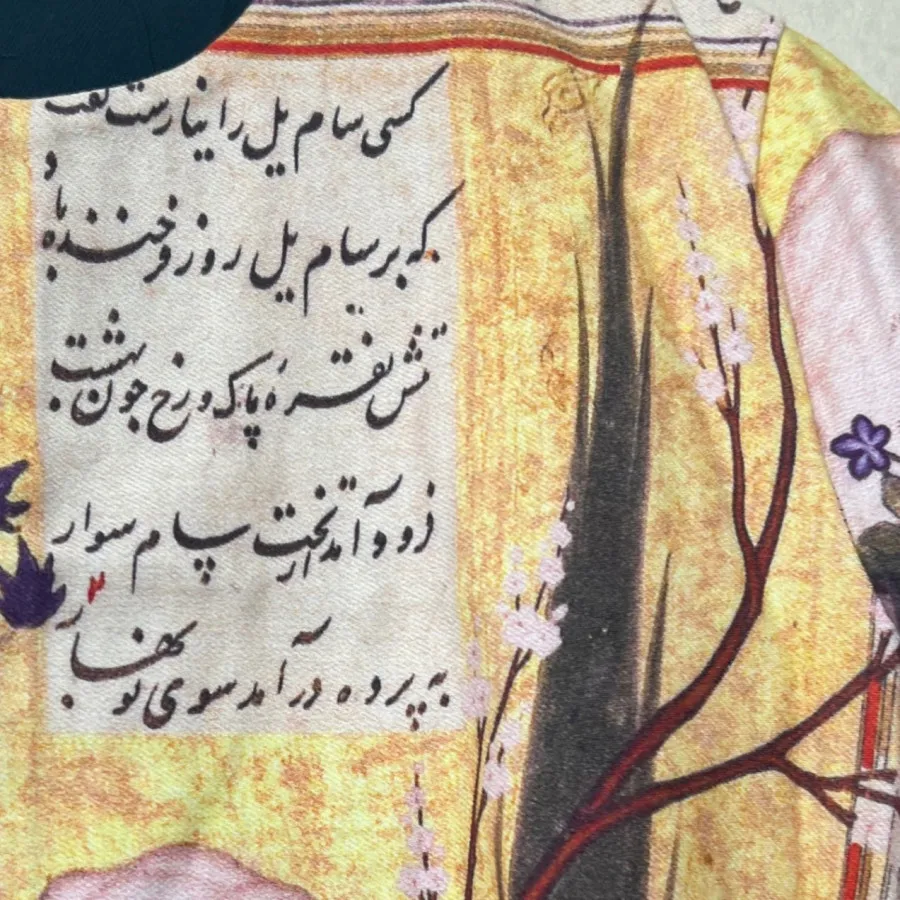 کسی سام یل را نیارست گفت
که بر سام یل روز فرخنده باد
تنش نقرهٔ پاک و رخ چون بهشت
فرود آمد از تخت سام سوار
به پرده درآمد سوی نوبهار